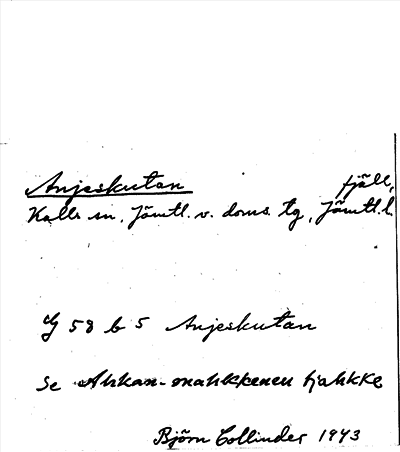 Anjeskutan fjäll,
Kalls sn, Jämtl. v. doms. tg, Jämtl. l.
G 58 b 5 Anjeskutan
Se Ahkan-mahkkenen tjahkke
Björn Collinder 1943